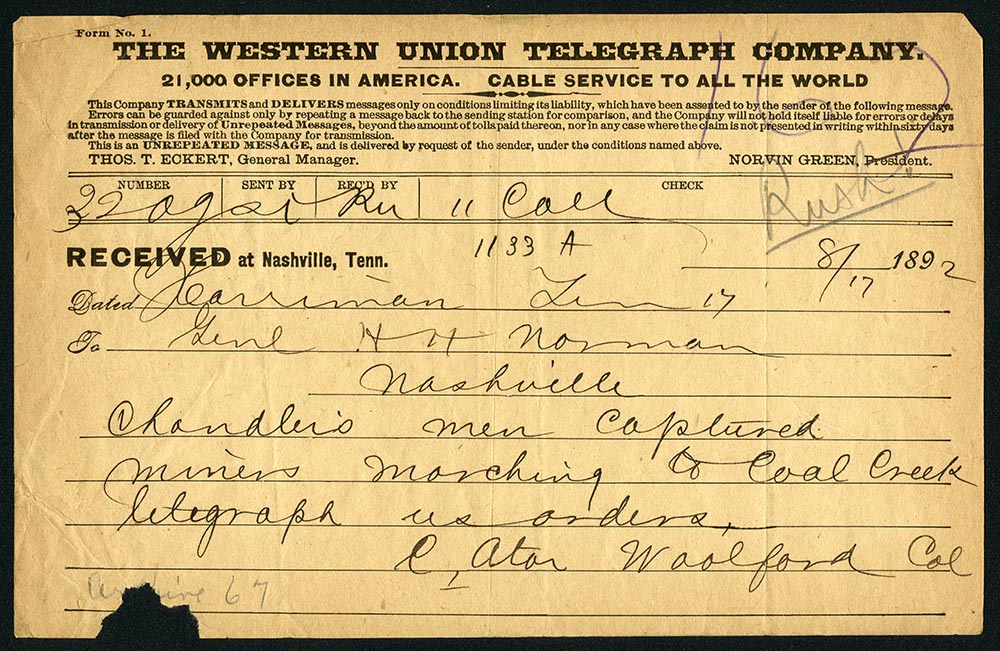 Form No. 1.
THE WESTERN UNION TELEGRAPH COMPANY.
21,000 OFFICES IN AMERICA. CABLE SERVICE TO ALL THE WORLD
This Company TRANSMITS and DELIVERS messages only on conditions limiting its liability, which have been assented to by the sender of the following message.
Errors can be guarded against only by repeating a message back to the sending station for comparison, and the Company will not hold itself liable for errors or delays
in transmission or delivery of Unrepeated Messages, beyond the amount of tolls paid thereon, nor in any case where the claim is not presented in writing within sixty days
after the message is filed with the Company for transmission.
This is an UNREPEATED MESSAGE, and is delivered by request of the sender, under the conditions named above.
THOS. T. ECKERT, General Manager. NORVIN GREEN, President.
Rush
NUMBER SENT BY REC'D BY CHECK
11 Coll
1133 A
RECEIVED at Nashville, Tenn. 8/17 1892
Dated Harriman Tenn 17
To Genl H H Norman
Nashville
Chandlers men captured
miners marching to Coal Creek
telegraph us orders.
C, Ator Woolford Col
67